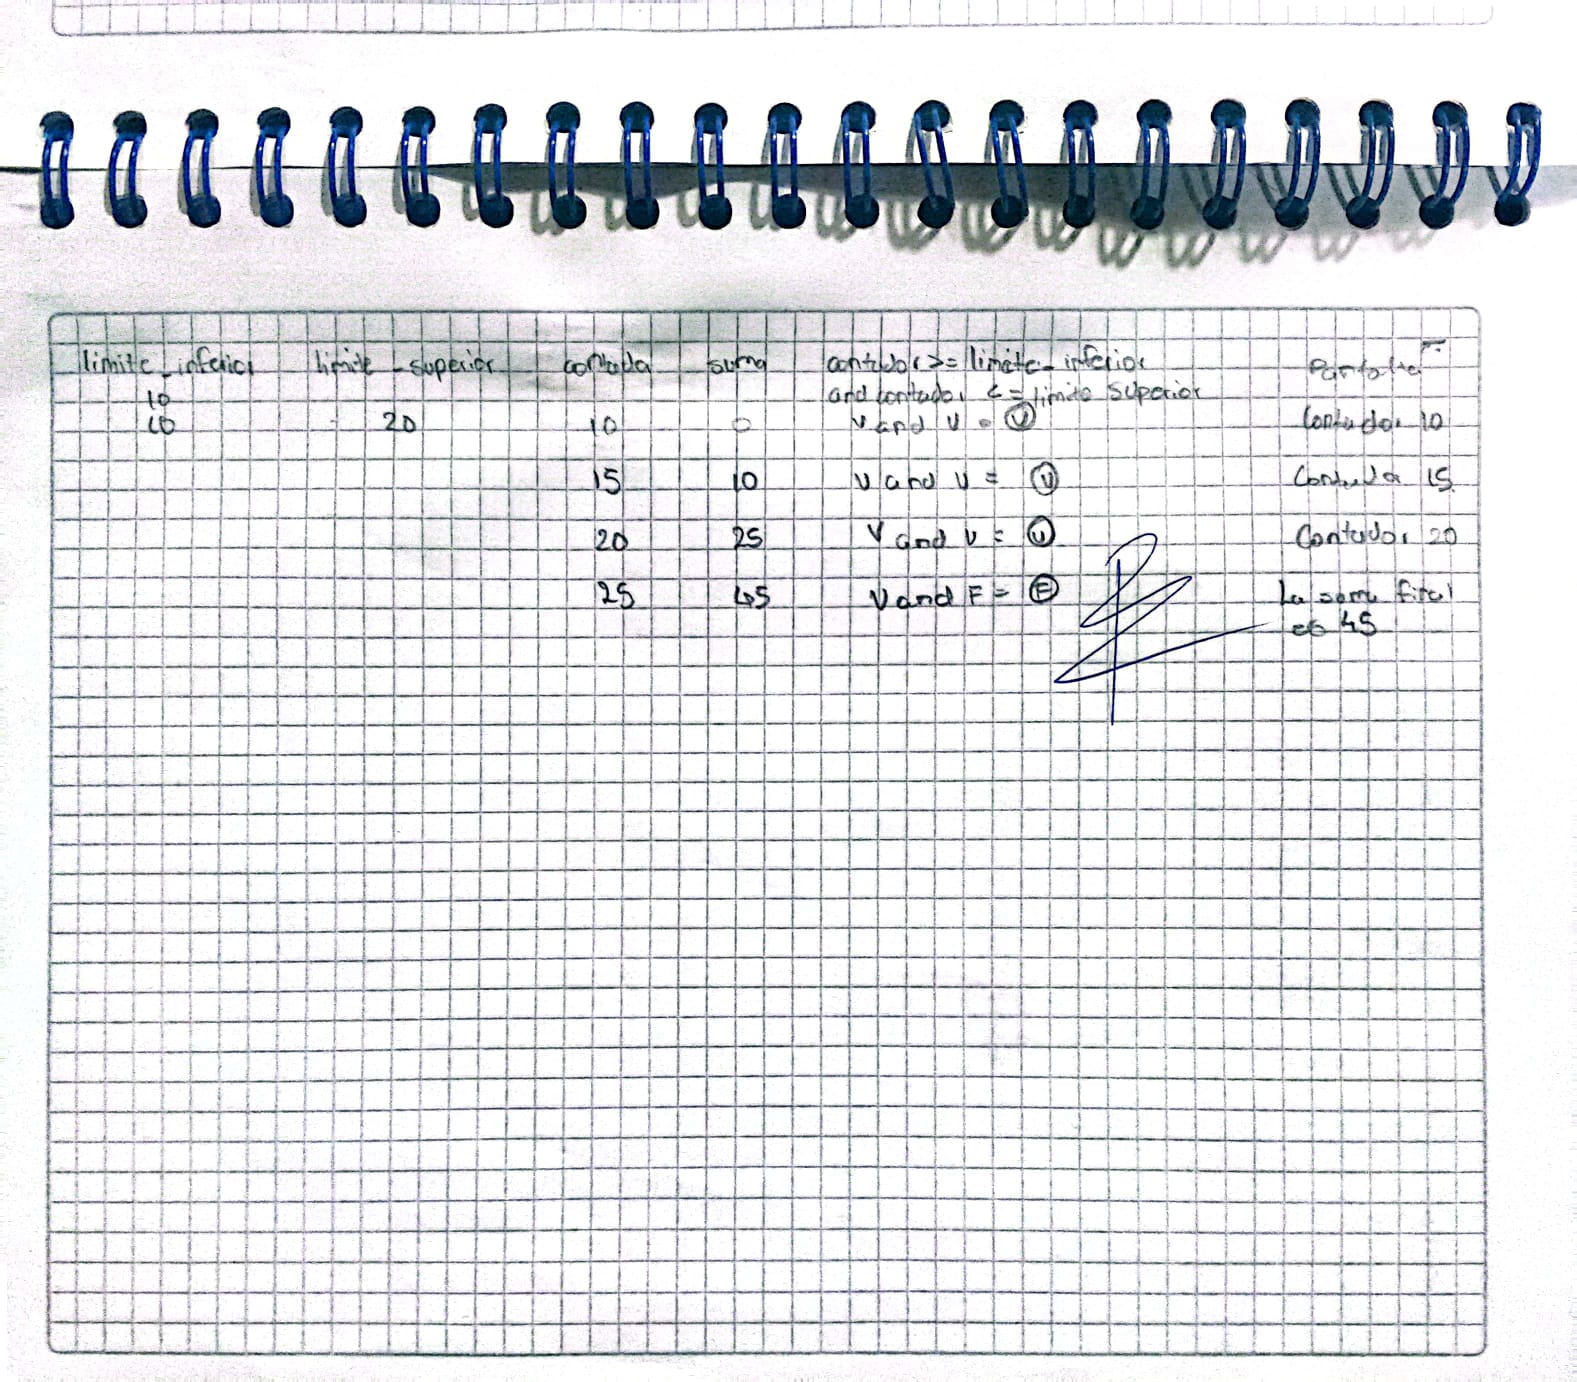 limite_inferior limite_superior contada suma contador >= limite_inferior Pantalla
10 and contador <= limite superior
10 20 10 0 v and v = V Contador 10
15 10 v and v = V Contada 15
20 25 V and v = V Contador 20
25 45 V and F = F La soma final
es 45